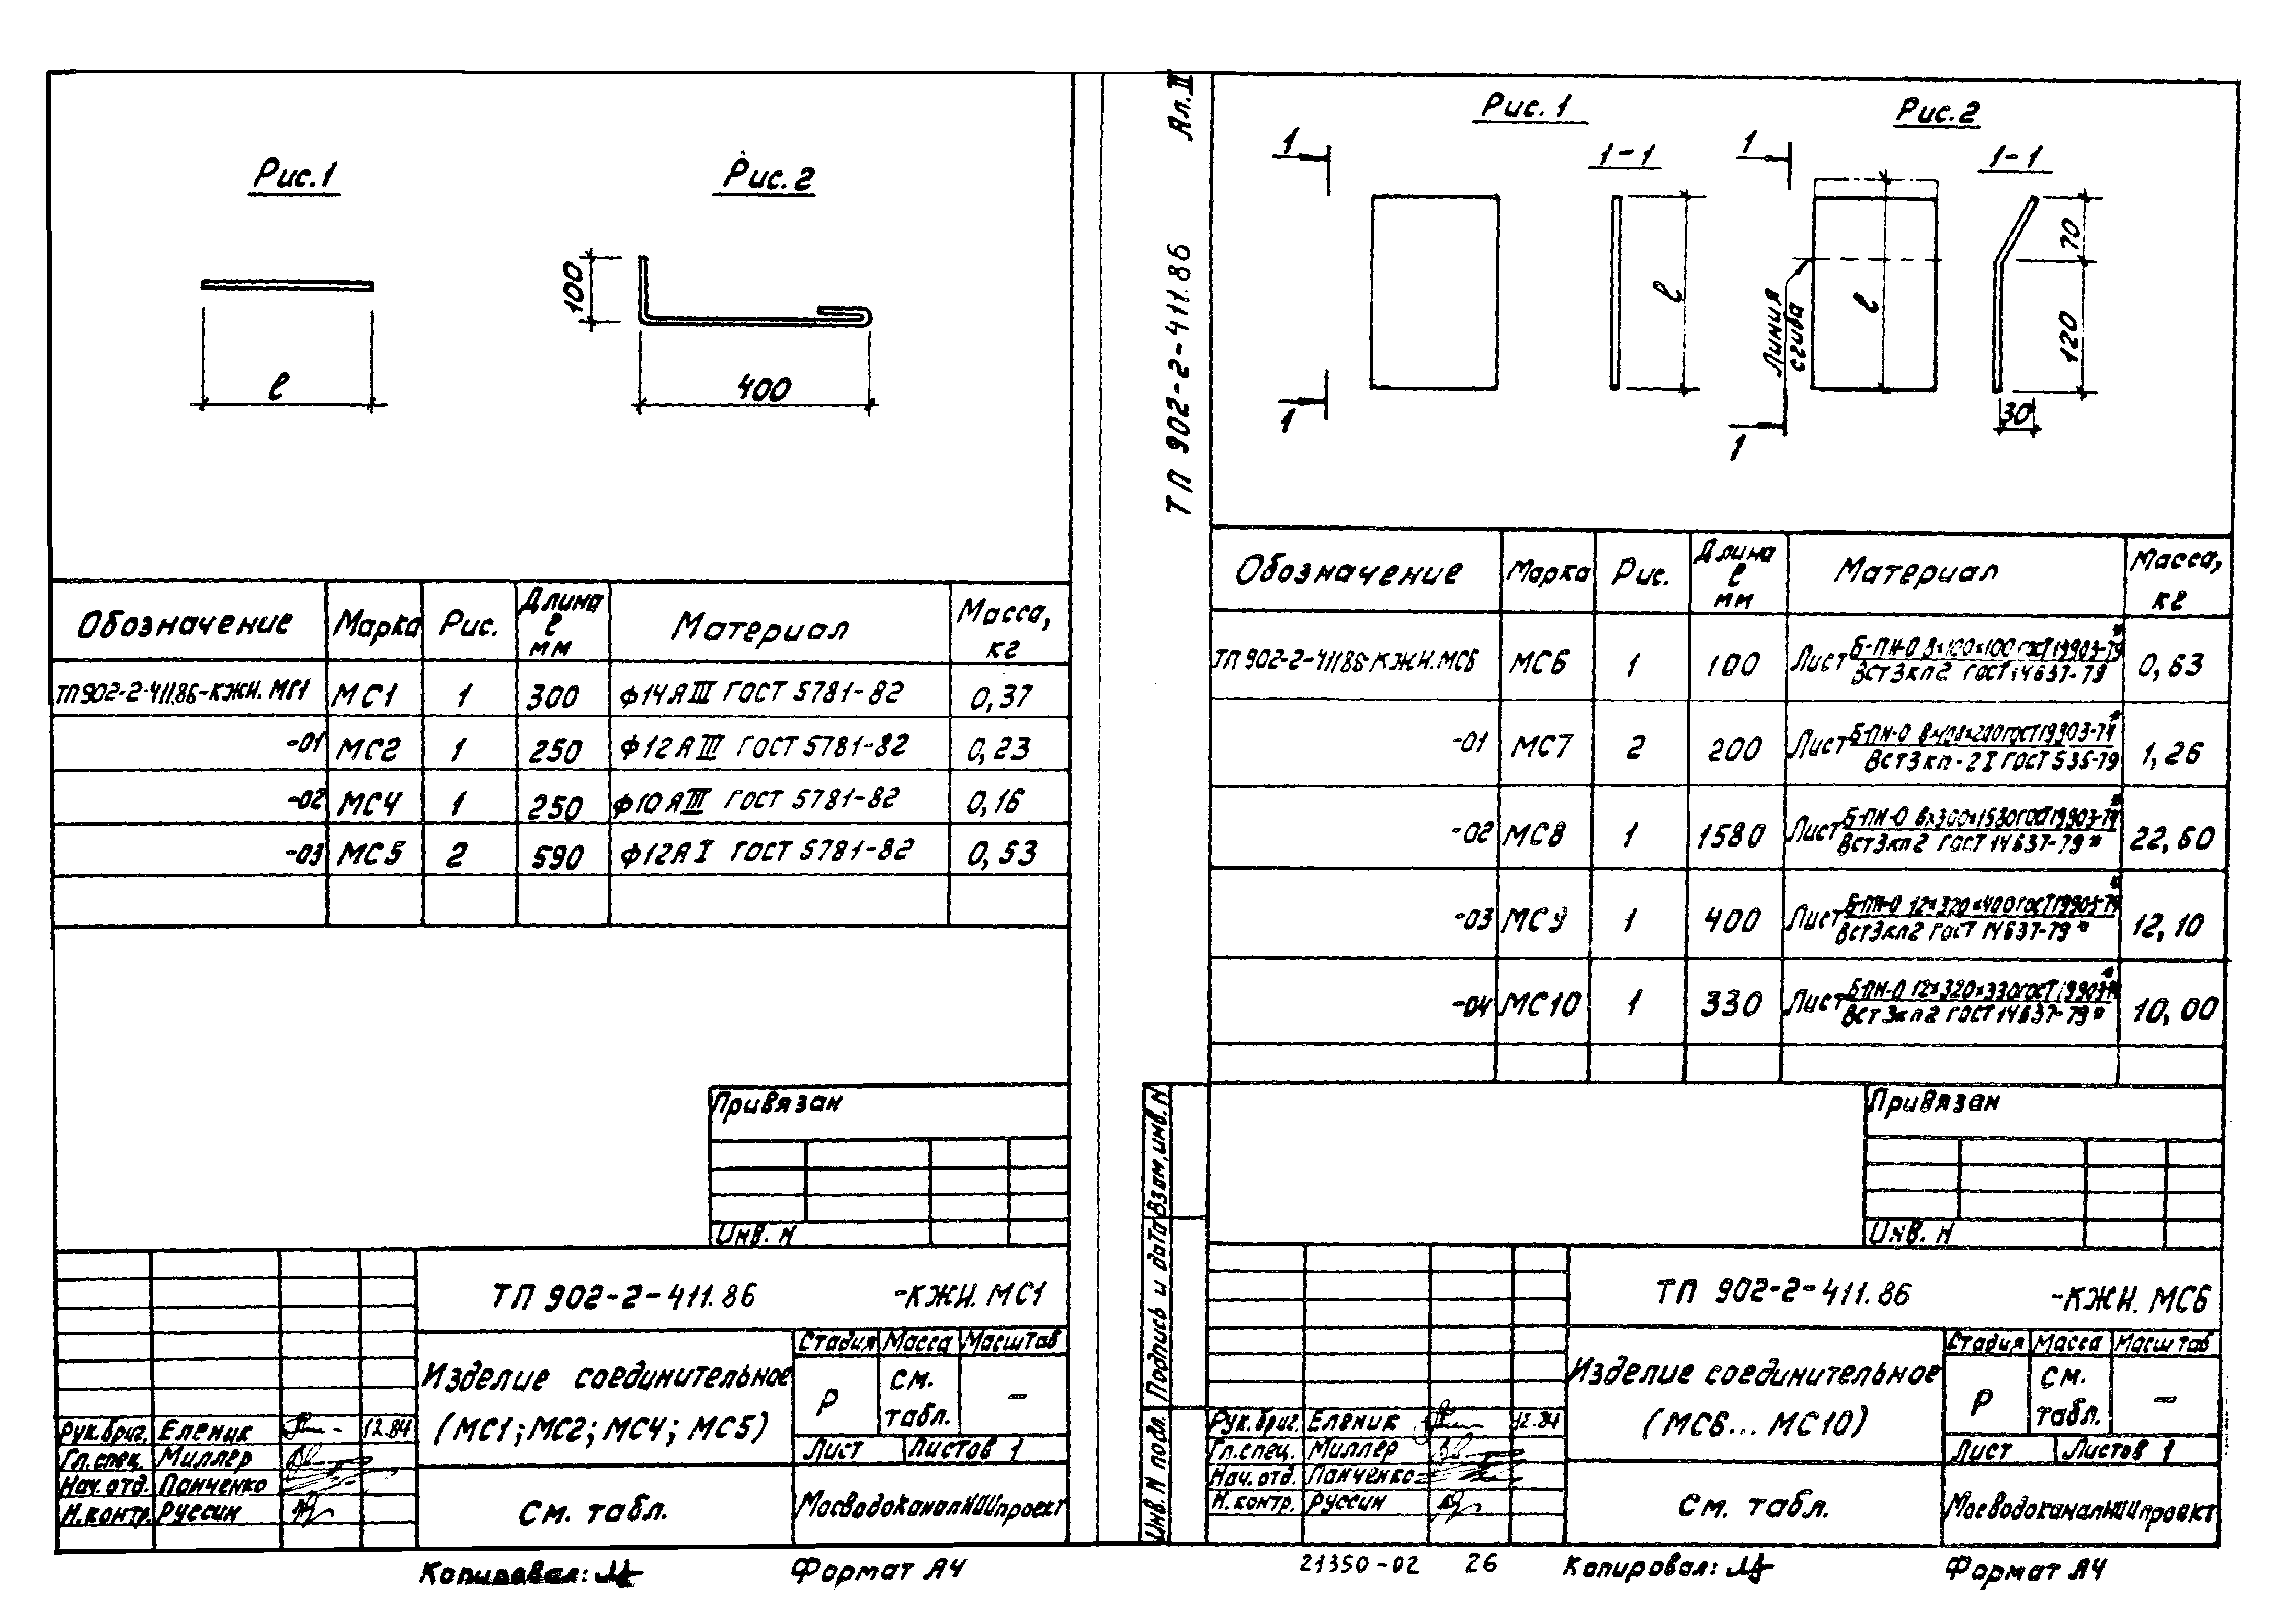 Рис.1
Рис.2
100
ℓ
400
Обозначение Марка Рис. Длина ℓ мм Материал Масса, кг
ТП902-2-411.86-КЖИ.МС1 МС1 1 300 ф14АIII ГОСТ 5781-82 0,37
-01 МС2 1 250 ф12АIII ГОСТ 5781-82 0,23
-02 МС4 1 250 ф10АIII ГОСТ 5781-82 0,16
-03 МС5 2 590 ф12АI ГОСТ 5781-82 0,53
Привязан
Инв. N
ТП 902-2-411.86 -КЖИ. МС1
Изделие соединительное
(МС1; МС2; МС4; МС5)
Стадия Масса Масштаб
Р см. табл. –
Лист Листов 1
Рук.бриг. Еленик 12.84
Гл.спец. Миллер
Нач.отд. Панченко
Н.контр. Руссин
См. табл.
МосводоканалНИИпроект
Копировал:
Формат А4
Ал.II
ТП 902-2-411.86
Рис. 1
Рис.2
1
1-1
1
1-1
ℓ
Линия
сгиба
ℓ
70
120
30
1
1
Обозначение Марка Рис. Длина ℓ мм Материал Масса, кг
ТП902-2-411.86-КЖИ.МС6 МС6 1 100 Лист Б-ПН-О 8×100×100 ГОСТ 19903-74* 0,63
ВСт3кп2 ГОСТ 14637-79
-01 МС7 2 200 Лист Б-ПН-О ГОСТ 19903-74* 1,26
ВСт3кп-2I ГОСТ 535-79
-02 МС8 1 1580 Лист Б-ПН-О 6×300×1580 ГОСТ 19903-74* 22,60
ВСт3кп2 ГОСТ 14637-79*
-03 МС9 1 400 Лист Б-ПН-О 12×320×400 ГОСТ 19903-74* 12,10
ВСт3кп2 ГОСТ 14637-79*
-04 МС10 1 330 Лист Б-ПН-О 12×320×330 ГОСТ 19903-74* 10,00
ВСт3кп2 ГОСТ 14637-79*
Привязан
Инв. N
Взам.инв.N
Подпись и дата
Инв.N подл.
ТП 902-2-411.86 -КЖИ. МС6
Изделие соединительное
(МС6... МС10)
Стадия Масса Масштаб
Р см. табл. –
Лист Листов 1
Рук.бриг. Еленик 12.84
Гл.спец. Миллер
Нач.отд. Панченко
Н.контр. Руссин
См. табл.
МосводоканалНИИпроект
21350-02 26
Копировал:
Формат А4